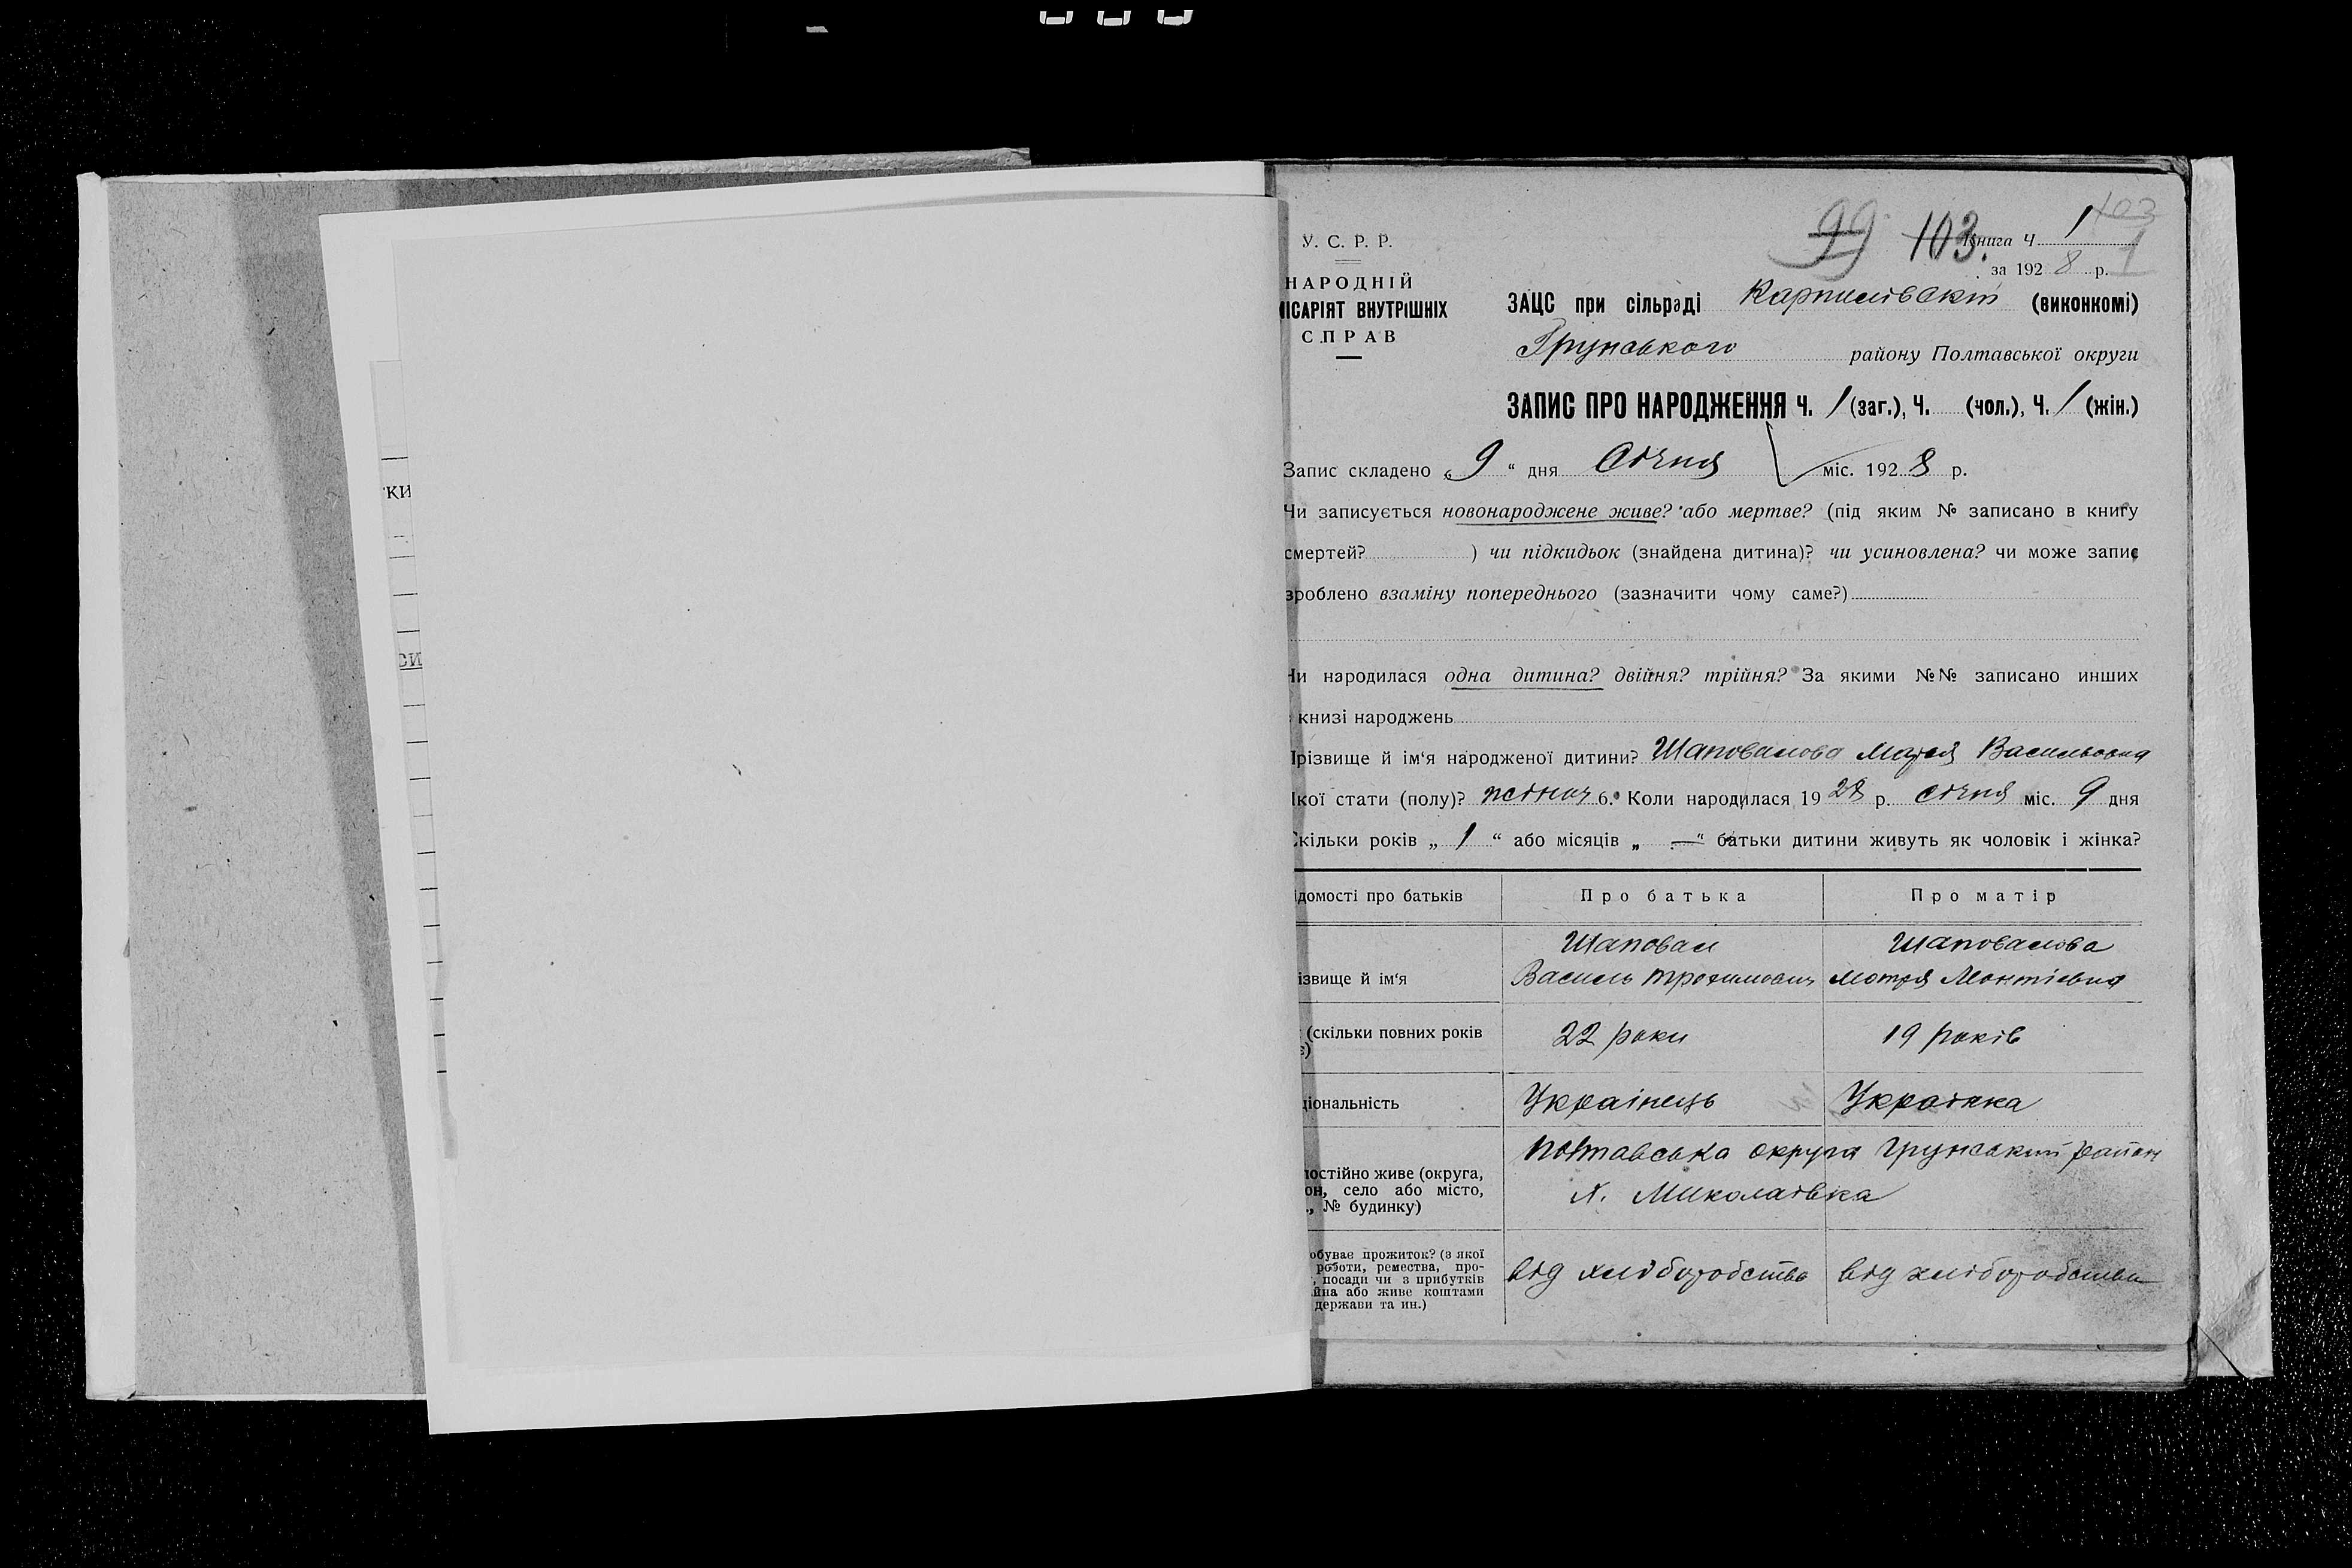 КИ
СИ
99 103. 103
У. С. Р. Р.
Книга Ч 1
1
за 1928 р.
НАРОДНІЙ
ІСАРІЯТ ВНУТРІШНІХ
СПРАВ
ЗАЦС при сільраді Карпилівскій (виконкомі)
Грунського району Полтавської округи
ЗАПИС ПРО НАРОДЖЕННЯ Ч. 1 (заг.), Ч. (чол.), Ч. 1 (жін.)
Запис складено „9“ дня Січня міс. 1928 р.
Чи записується новонароджене живе? або мертве? (під яким № записано в книгу
смертей? ) чи підкидьок (знайдена дитина)? чи усиновлена? чи може запис
зроблено взаміну попереднього (зазначити чому саме?)
Чи народилася одна дитина? двійня? трійня? За якими №№ записано инших
книзі народжень
Прізвище й ім‘я народженої дитини? Шаповалова Васильовна
Якої стати (полу)? жіноч 6. Коли народилася 1928 р. січня міс. 9 дня
Скільки років „1“ або місяців „—“ батьки дитини живуть як чоловік і жінка?
ідомості про батьків Про батька Про матір
Шаповал Шаповалова
ізвище й ім‘я Василь Трохимович Мотря Леонтіевна
(скільки повних років 22 роки 19 років
є)
ціональність Украінець Украінка
Полтавська округа Грунський район
постійно живе (округа,
он, село або місто, х. Миколаівка
., № будинку)
обуває прожиток? (з якої
роботи, ремества, про- від хліборобства від хліборобства
, посади чи з прибутків
йна або живе коштами
держави та ин.)